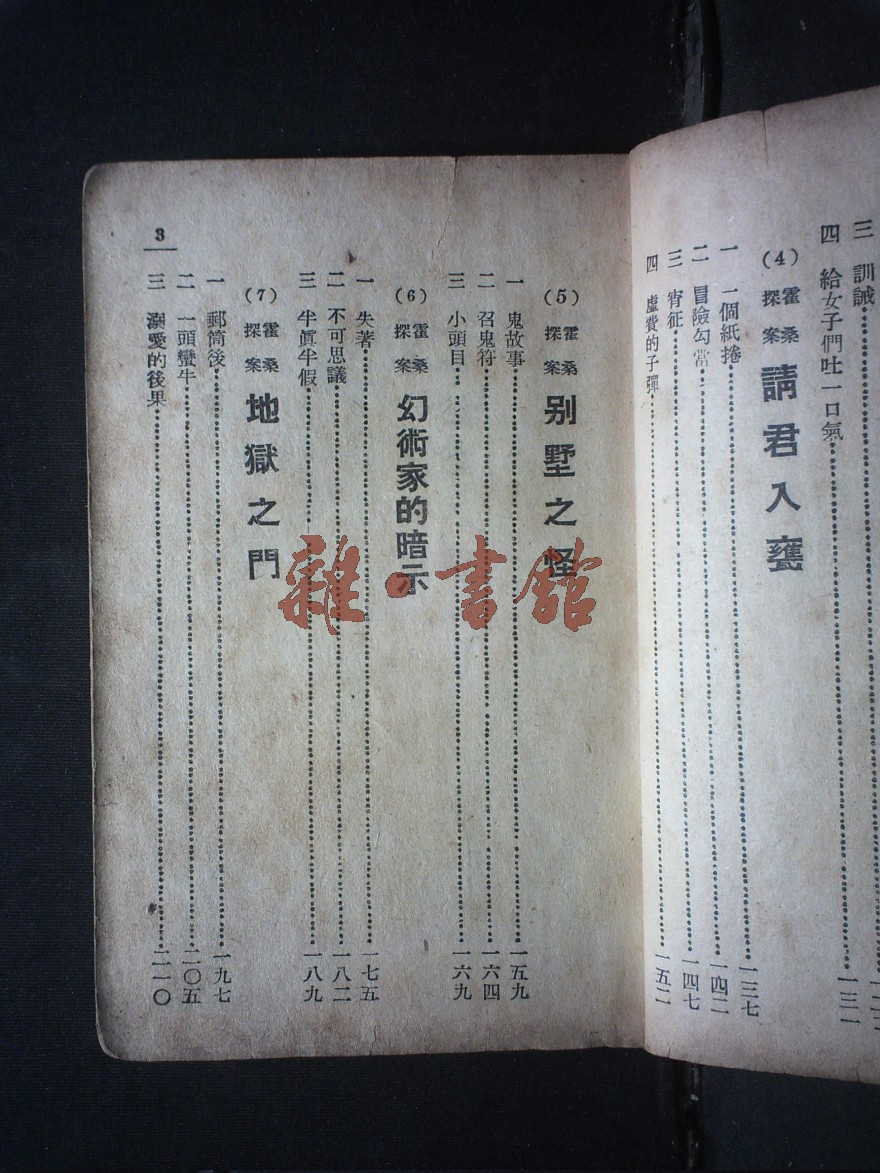 三 訓誡
四 給女子們吐一口氣……一三一
(4) 霍桑探案 請君入甕
一 一個紙捲……一三七
二 冒險勾當……一四二
三 宵征……一四七
四 虛費的子彈……一五二
(5) 霍桑探案 別墅之怪
一 鬼故事……一五九
二 召鬼符……一六四
三 小頭目……一六九
(6) 霍桑探案 幻術家的暗示
一 失著……一七五
二 不可思議……一八二
三 半眞半假……一八九
(7) 霍桑探案 地獄之門
一 郵筒後……一九七
二 一頭蠻牛……二〇五
三 溺愛的後果……二一〇
3
雜·書館